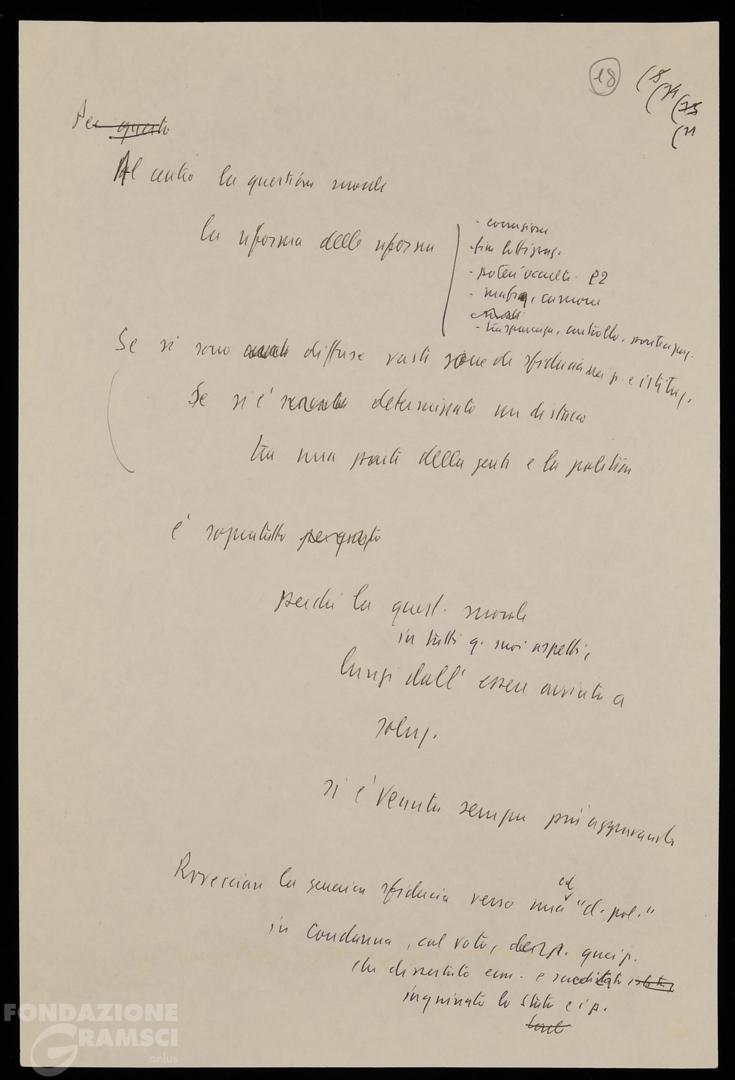 18
Per questo
Al centro la questione morale
la riforma delle riforme
- corruzione
- potere occulto P2
- mafia, camorra
- trasparenza, controllo,
Se si sono diffuse vaste zone di sfiducia nei p. e istituz.
Se si è determinato un distacco
tra una parte della gente e la politica
è soprattutto per questo
perché la quest. morale
in tutti q. suoi aspetti,
lungi dall'essere avviata a
soluz.
si è venuta sempre più aggravando
Rovesciare la generica sfiducia verso una cd "cl. pol."
in condanna, col voto, dei p.
che
inquinato lo Stato e i p.
FONDAZIONE
GRAMSCI
onlus